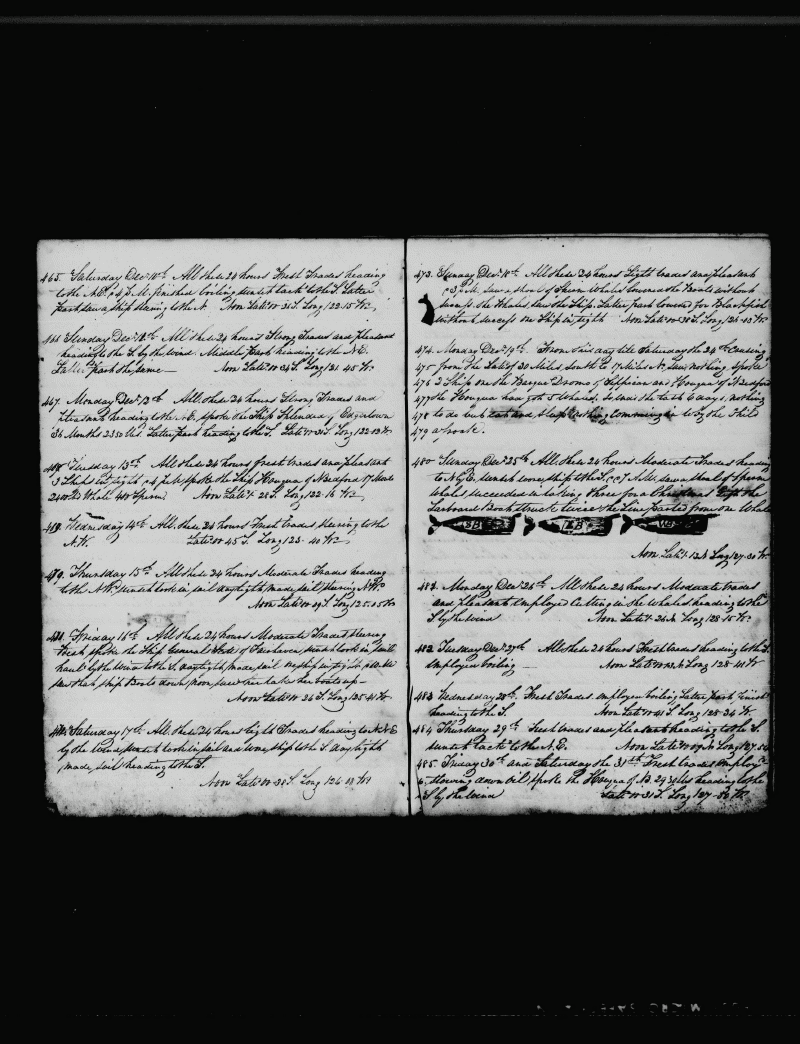 465. Saturday Dec 10th All these 24 hours Fresh Trades heading
to the N.E. 4 P.M. finished boiling sunset tack to the S. Latter
part saw a ship steering to the N. Noon Lat 00 31 S. Long 122 15 W
466 Sunday Dec All these 24 hours Strong Trades and pleasant
heading to the S. by the wind. Middle part heading to the N.E.
Latter part the same Noon Lat 00 34 S. Long 121 45 W
467. Monday Dec. All these 24 hours Strong Trades and
pleasant heading to the N.E. spoke the Ship Splendid of Edgartown
36 Months 2350 bbls. Latter part heading to the S. Lat 00 31 S. Long 122 03 W
468 Tuesday 13th All these 24 hours fresh trades and pleasant
3 Ships in sight, P.M. spoke the Ship Houqua of N Bedford 17 Months
2400 bbls Whale 400 Sperm Noon Lat 28 S. Long 122 16 W
469. Wednesday 14th All these 24 hours Fresh trades steering to the
N.W. Lat 00 45 S. Long 123 40 W
470. Thursday 15th All these 24 hours Moderate Trades heading
to the N.W. sunset took in sail daylight made sail steering N.W.
Noon Lat 00 29 S. Long 125 05 W
471. Friday 16th All these 24 hours Moderate Trades steering
West, spoke the Ship General Scott of Fairhaven, sunset took in sail
haul by the wind to the S. daylight, made sail ship in sight
saw that ship Boats down, noon saw her take her boats up
Noon Lat 00 26 S. Long 125 41 W
472. Saturday 17th All these 24 hours light Trades heading to N.N.E
by the wind, sunset took in sail and wore ship to the S. daylight
made sail heading to the S.
Noon Lat 00 38 S. Long 126 08 W
473. Sunday Dec. 18th All these 24 hours Light trades and pleasant
3 P.M. saw a shoal of Sperm Whales lowered the Boats without
success the Whales saw the Ship, Latter part lowered for Blackfish
without success one Ship in sight Noon Lat 00 38 S. Long 126 13 W
474. Monday Dec. 19th. From this day till Saturday the 24th Cruising
475 from the Lat of 30 Miles South to 17 Miles N, saw nothing spoke
476 2 Ship on the Barque Droma of Sippican and Houqua of N Bedford
477 the Houqua has got 5 Whales. So ends the last 6 days, nothing
478 to do but eat and sleep nothing comming in by the
479
480 Sunday Dec 25th All these 24 hours Moderate Trades heading
to N E, sunset wore ship to the S, P.M. saw a shoal of Sperm
Whales succeeded in taking three for a Christmas the
Larboard Boat struck twice the Line parted from one Whale
SB LB WB
Noon Lat 12 N Long 127 30 W
481. Monday Dec 26th All these 24 hours Moderate trades
and pleasant employed Cutting in the Whales heading to the
S by the wind Noon Lat 26 N Long 128 15 W
482 Tuesday Dec 27th All these 24 hours Fresh trades heading to the S.
employed boiling Noon Lat 00 N Long 128 41 W
483 Wednesday 28th Fresh Trades employed boiling Latter part finished
heading to the S. Noon Lat 00 41 S. Long 128 34 W
484 Thursday 29th Fresh trades and pleasant heading to the S.
sunset tack to the N.E. Noon Lat 00 09 N Long 127
485. Friday 30th and Saturday the 31st Fresh trades employed
6. stowing down oil, spoke the Houqua of N.B. bbls heading to the
S by the wind Lat 00 31 S. Long 127 56 W